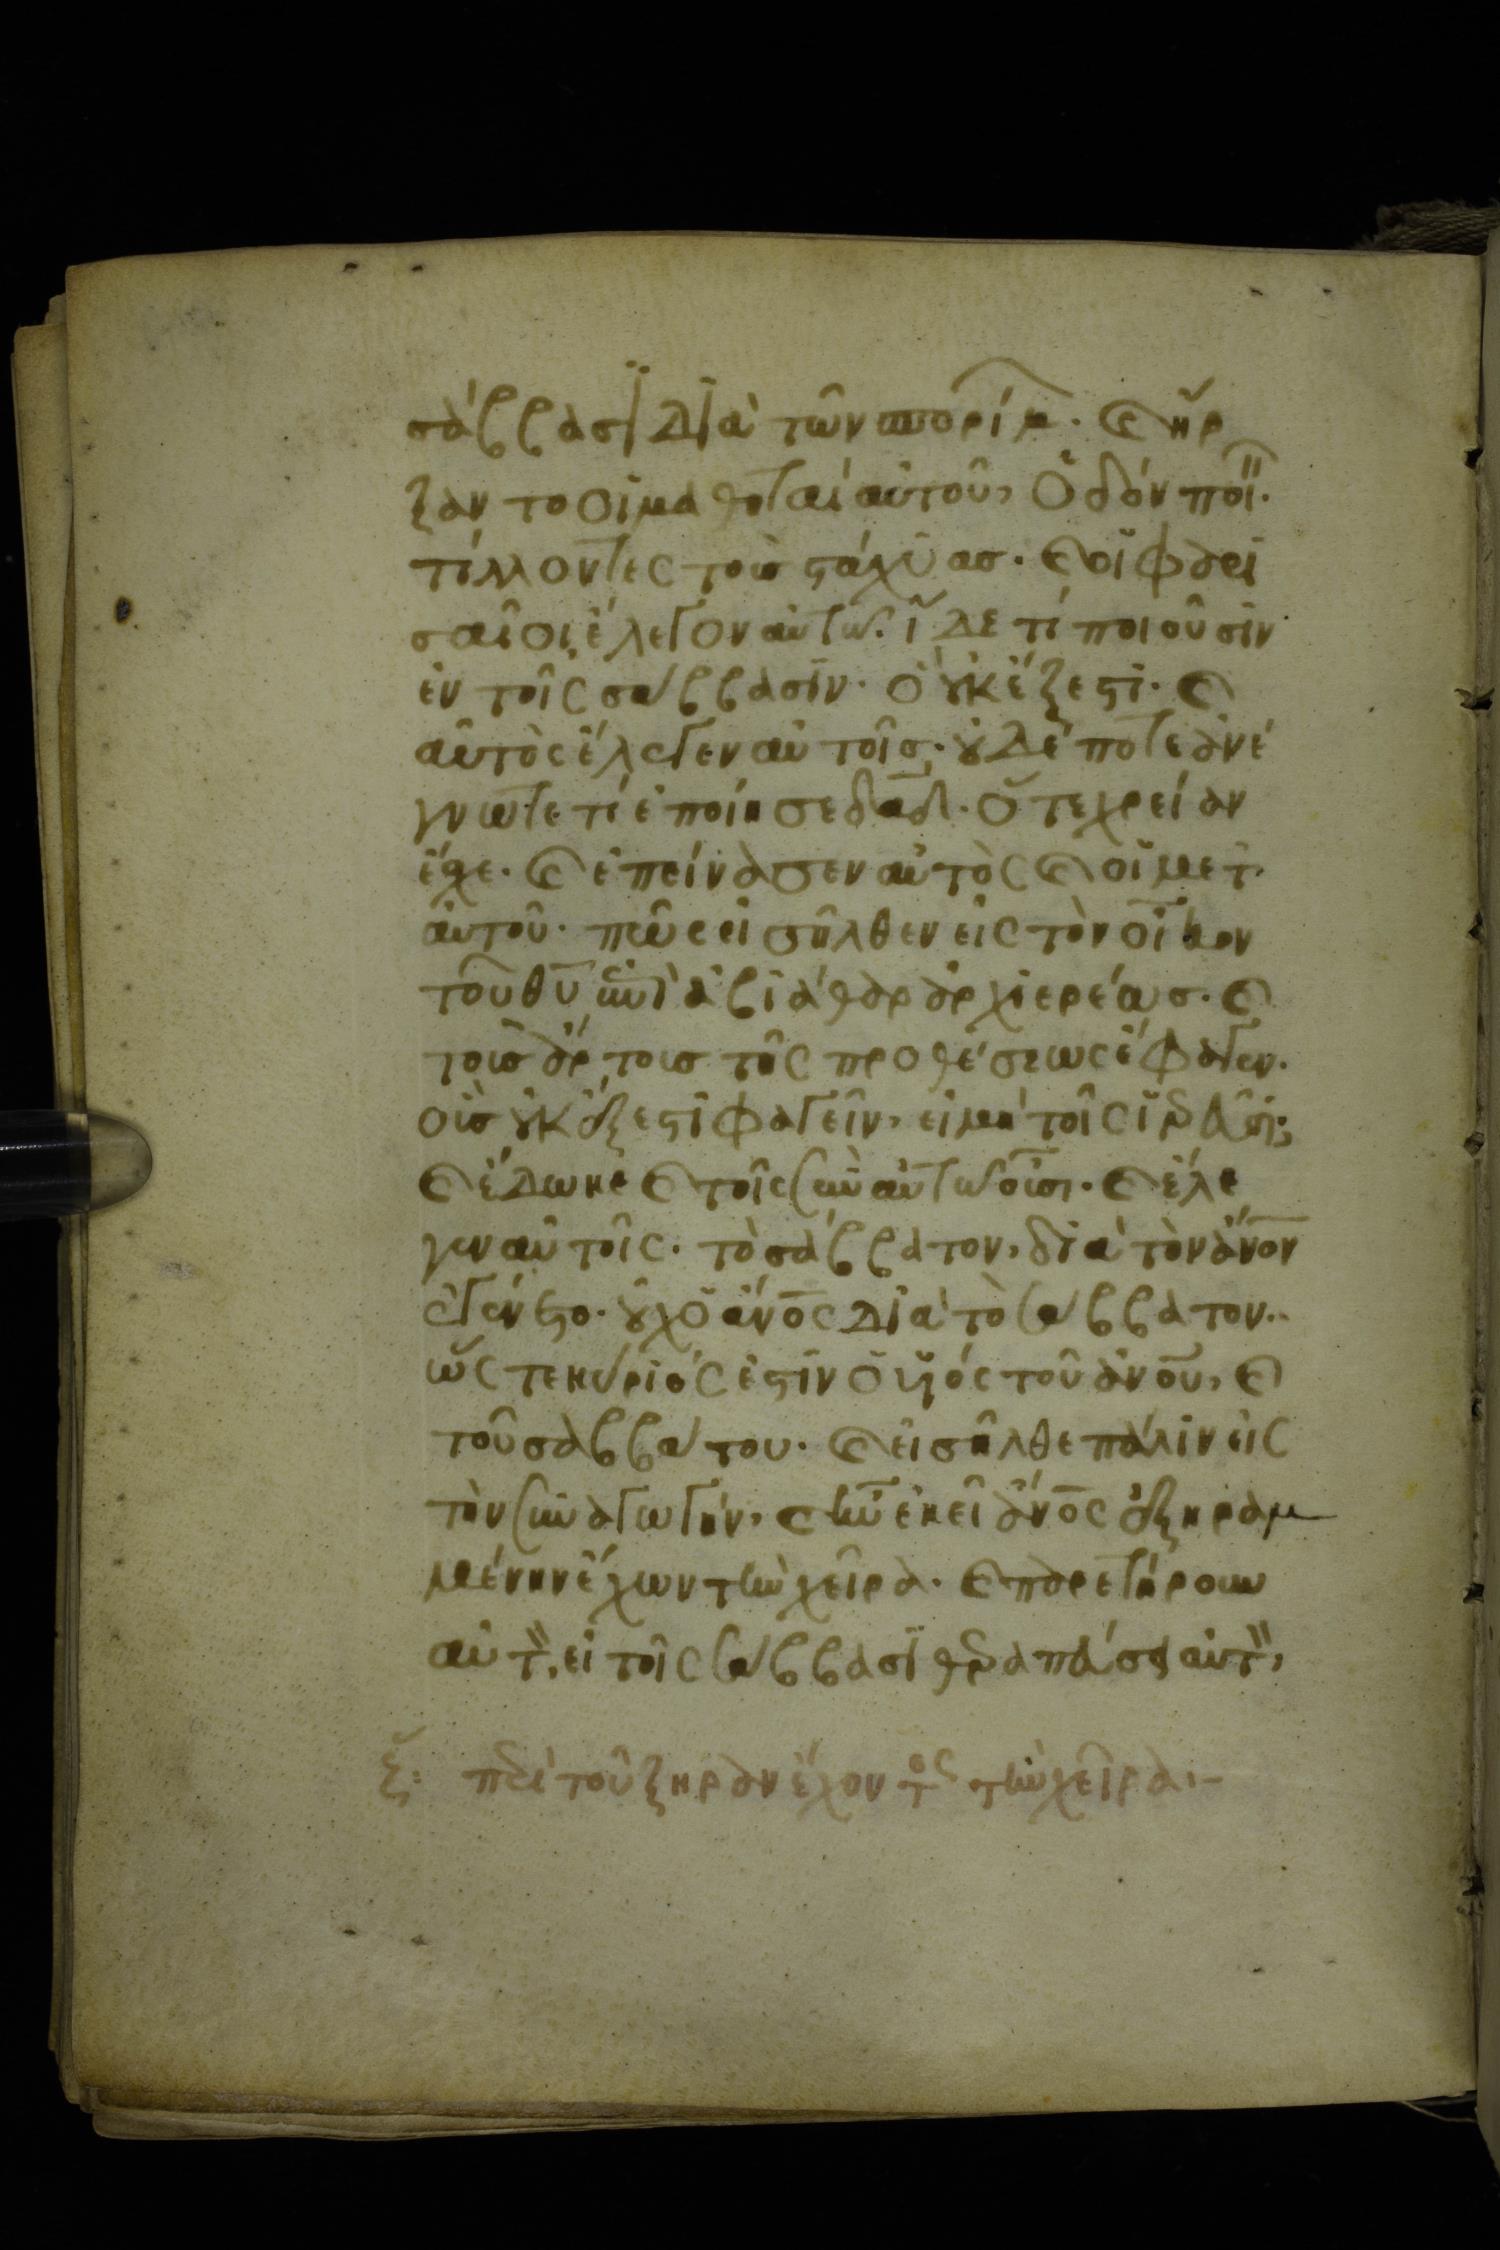 σάββασϊ διὰ τῶν σπορίμ. καὶ ἤρ
ξαν το οἱ μαθηταί αὐτοῦ, ὁδόν ποϊ.
τίλλοντες τοὺς στάχϋας. καὶ οἱ φαρι
σαῖοι, ἔλεγον αὐτῶ. ἴδε τί ποιοῦσιν
ἐν τοῖς σάββασϊν. ὃ οὐκ ἔξεστϊ. καὶ
αὐτὸς ἔλεγεν αὐτοῖς. οὐδέποτε ἀνέ
γνωτε τί ἐποίησε δαδ. ὅτε χρείαν
ἔσχε. καὶ ἐπείνασεν αὐτὸς καὶ οἱ μετ
αὐτοῦ. πῶς εἰσῆλθεν εἰς τὸν οἶκον
τοῦ θυ ἐπὶ ἀβϊάθαρ ἀρχϊερέως. καὶ
τοὺς ἄρτους τῆς προθέσεως ἔφαγεν.
οὓς οὐκ ἔξεστϊ φαγεῖν, εἰ μὴ τοῖς ἱερεῦσι;
καὶ ἔδωκε καὶ τοῖς σὺν αὐτῶ οὖσι. καὶ ἔλε
γεν αὐτοῖς. τὸ σάββατον, διὰ τὸν ἄνον
ἐγένετο. οὐχ ὁ ἄνος διὰ τὸ σάββατον..
ὥστε κύριός ἐστϊν ὁ υἱός τοῦ ἀνου, καὶ
τοῦ σαββάτου. καὶ εἰσῆλθε πάλϊν εἰς
τὴν συναγωγήν, καὶ ἦν ἐκεῖ ἄνος ἐξηραμ
μένην ἔχων τὴν χεῖρα. καὶ παρετήρουν
αὐτ, εἰ τοῖς σάββασϊ θεραπεύσει αὐτ,
ξ: περὶ τοῦ ξηρὰν ἔχοντος τὴν χεῖρα:-